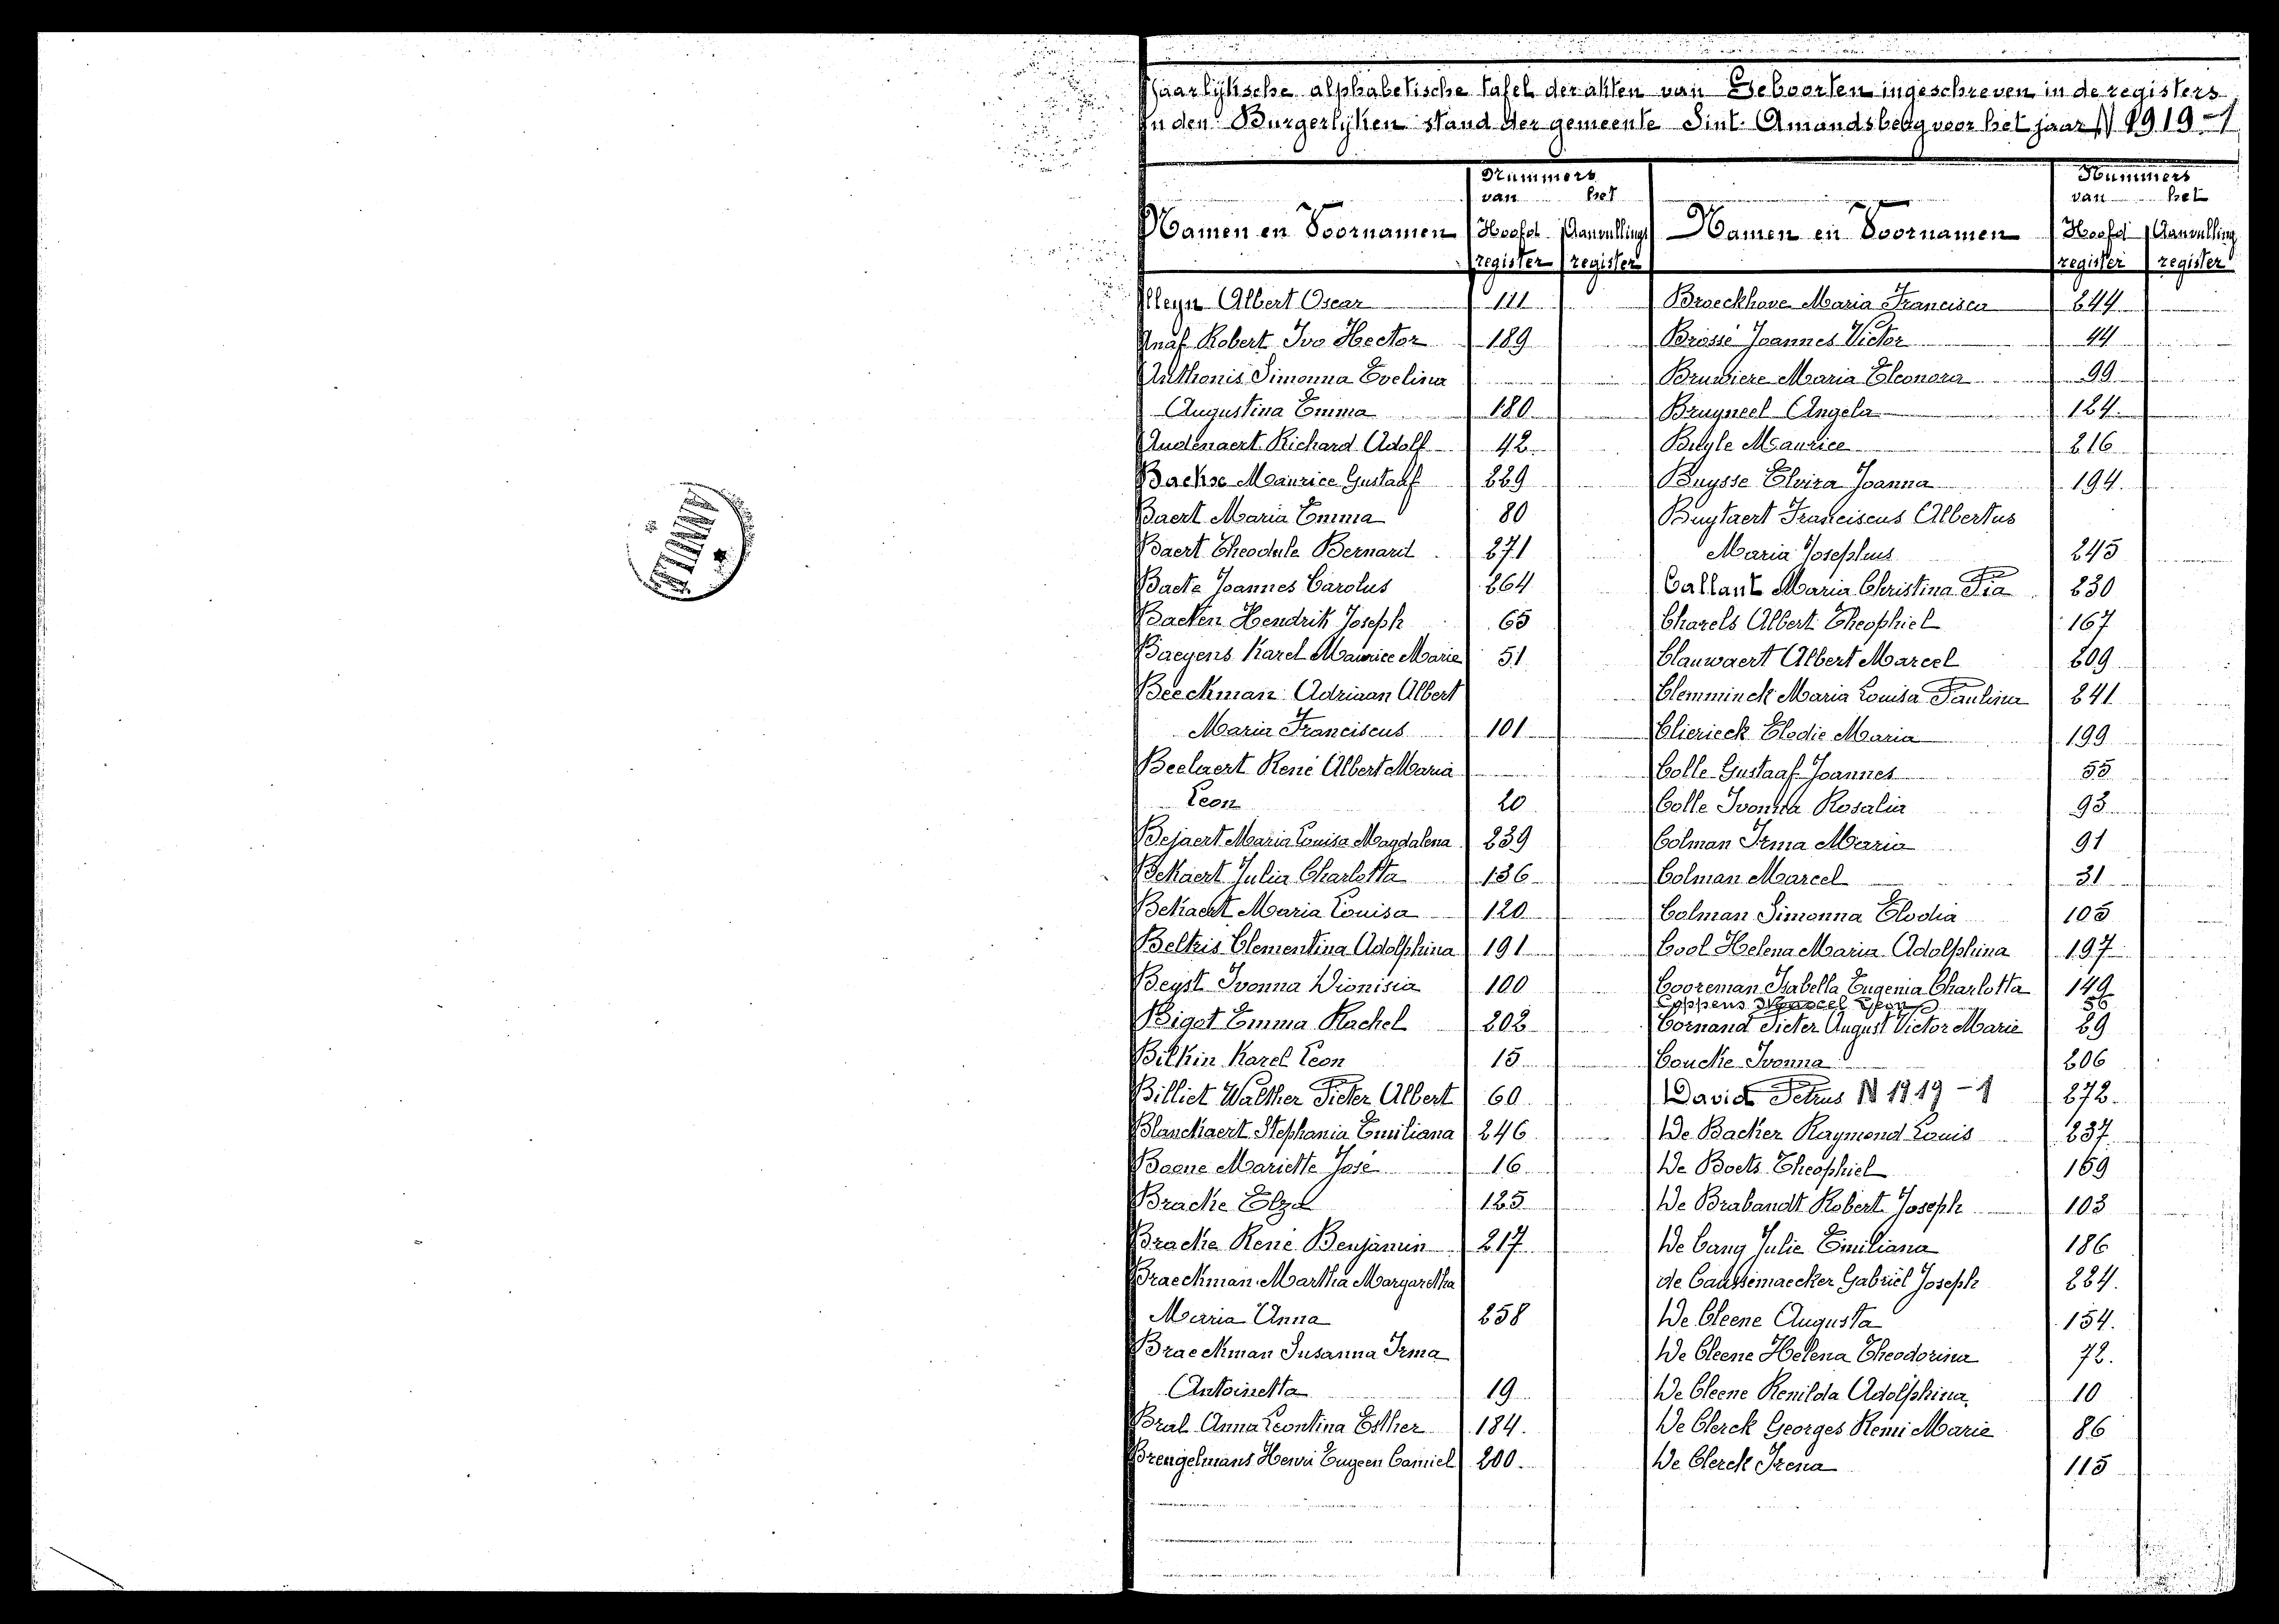 Jaarlijksche alphabetische tafel der akten van Geboorten ingeschreven in de registers
In den Burgerlyken stand der gemeente Sint. Amandsberg voor het jaar N 1919-1
Nummers
van het
Namen en Voornamen Hoofd register Aanvullings register
Nummers
van het
Namen en Voornamen Hoofd register Aanvulling register
Alleyn Albert Oscar 111
Anaf Robert Ivo Hector 189
Anthonis Simonna Evelina
Augustina Emma 180
Audenaert Richard Adolf 42
Baekse Maurice Gustaaf 229
Baert Maria Emma 80
Baert Theodule Bernard 271
Baete Joannes Carolus 264
Baeten Hendrik Joseph 65
Baeyens Karel Maurice Marie 51
Beeckman Adriaan Albert
Maria Franciscus 101
Beelaert René Albert Maria
Leon 20
Bejaert Maria Louisa Magdalena 239
Bekaert Julia Charlotta 136
Bekaert Maria Louisa 120
Beltris Clementina Adolphina 191
Beyst Ivonna Dionisia 100
Bigot Emma Rachel 202
Bilkin Karel Leon 15
Billiet Walther Pieter Albert 60
Blanckaert Stephania Emiliana 246
Boone Mariette José 16
Bracke Elza 125
Bracke René Benjamin 217
Braeckman Martha Margaretha
Maria Anna 258
Braeckman Susanna Irma
Antoinetta 19
Bral Anna Leontina Esther 184.
Brengelmans Henri Eugeen Camiel 200.
Broeckhove Maria Francisca 244
Brossé Joannes Victor 44
Bruwiere Maria Eleonora 99
Bruyneel Angela 124.
Buyle Maurice 216
Buysse Elvira Joanna 194.
Buytaert Franciscus Albertus
Maria Josephus 245
Callant Maria Christina Pia 230
Charels Albert Theophiel 167
Clauwaert Albert Marcel 209
Clemminck Maria Louisa Paulina 241
Clierieck Elodie Maria 199
Colle Gustaaf Joannes 55
Colle Ivonna Rosalia 93
Colman Irma Maria 91
Colman Marcel 31
Colman Simonna Elodia 105
Cool Helena Maria Adolphina 197
Cooreman Isabella Eugenia Charlotta 149
Coppens Marcel Leon 56
Cornand Pieter August Victor Marie 29
Coucke Ivonna 206
David Petrus N 1919-1 272.
De Backer Raymond Louis 237
De Boets Theophiel 159
De Brabandt Robert Joseph 103
De Cang Julie Emiliana 186
de Caussemaecker Gabriël Joseph 224.
De Cleene Augusta 154.
De Cleene Helena Theodorina 72.
De Cleene Renilda Adolphina 10
De Clerck Georges Remi Marie 86
De Clerck Irena 115